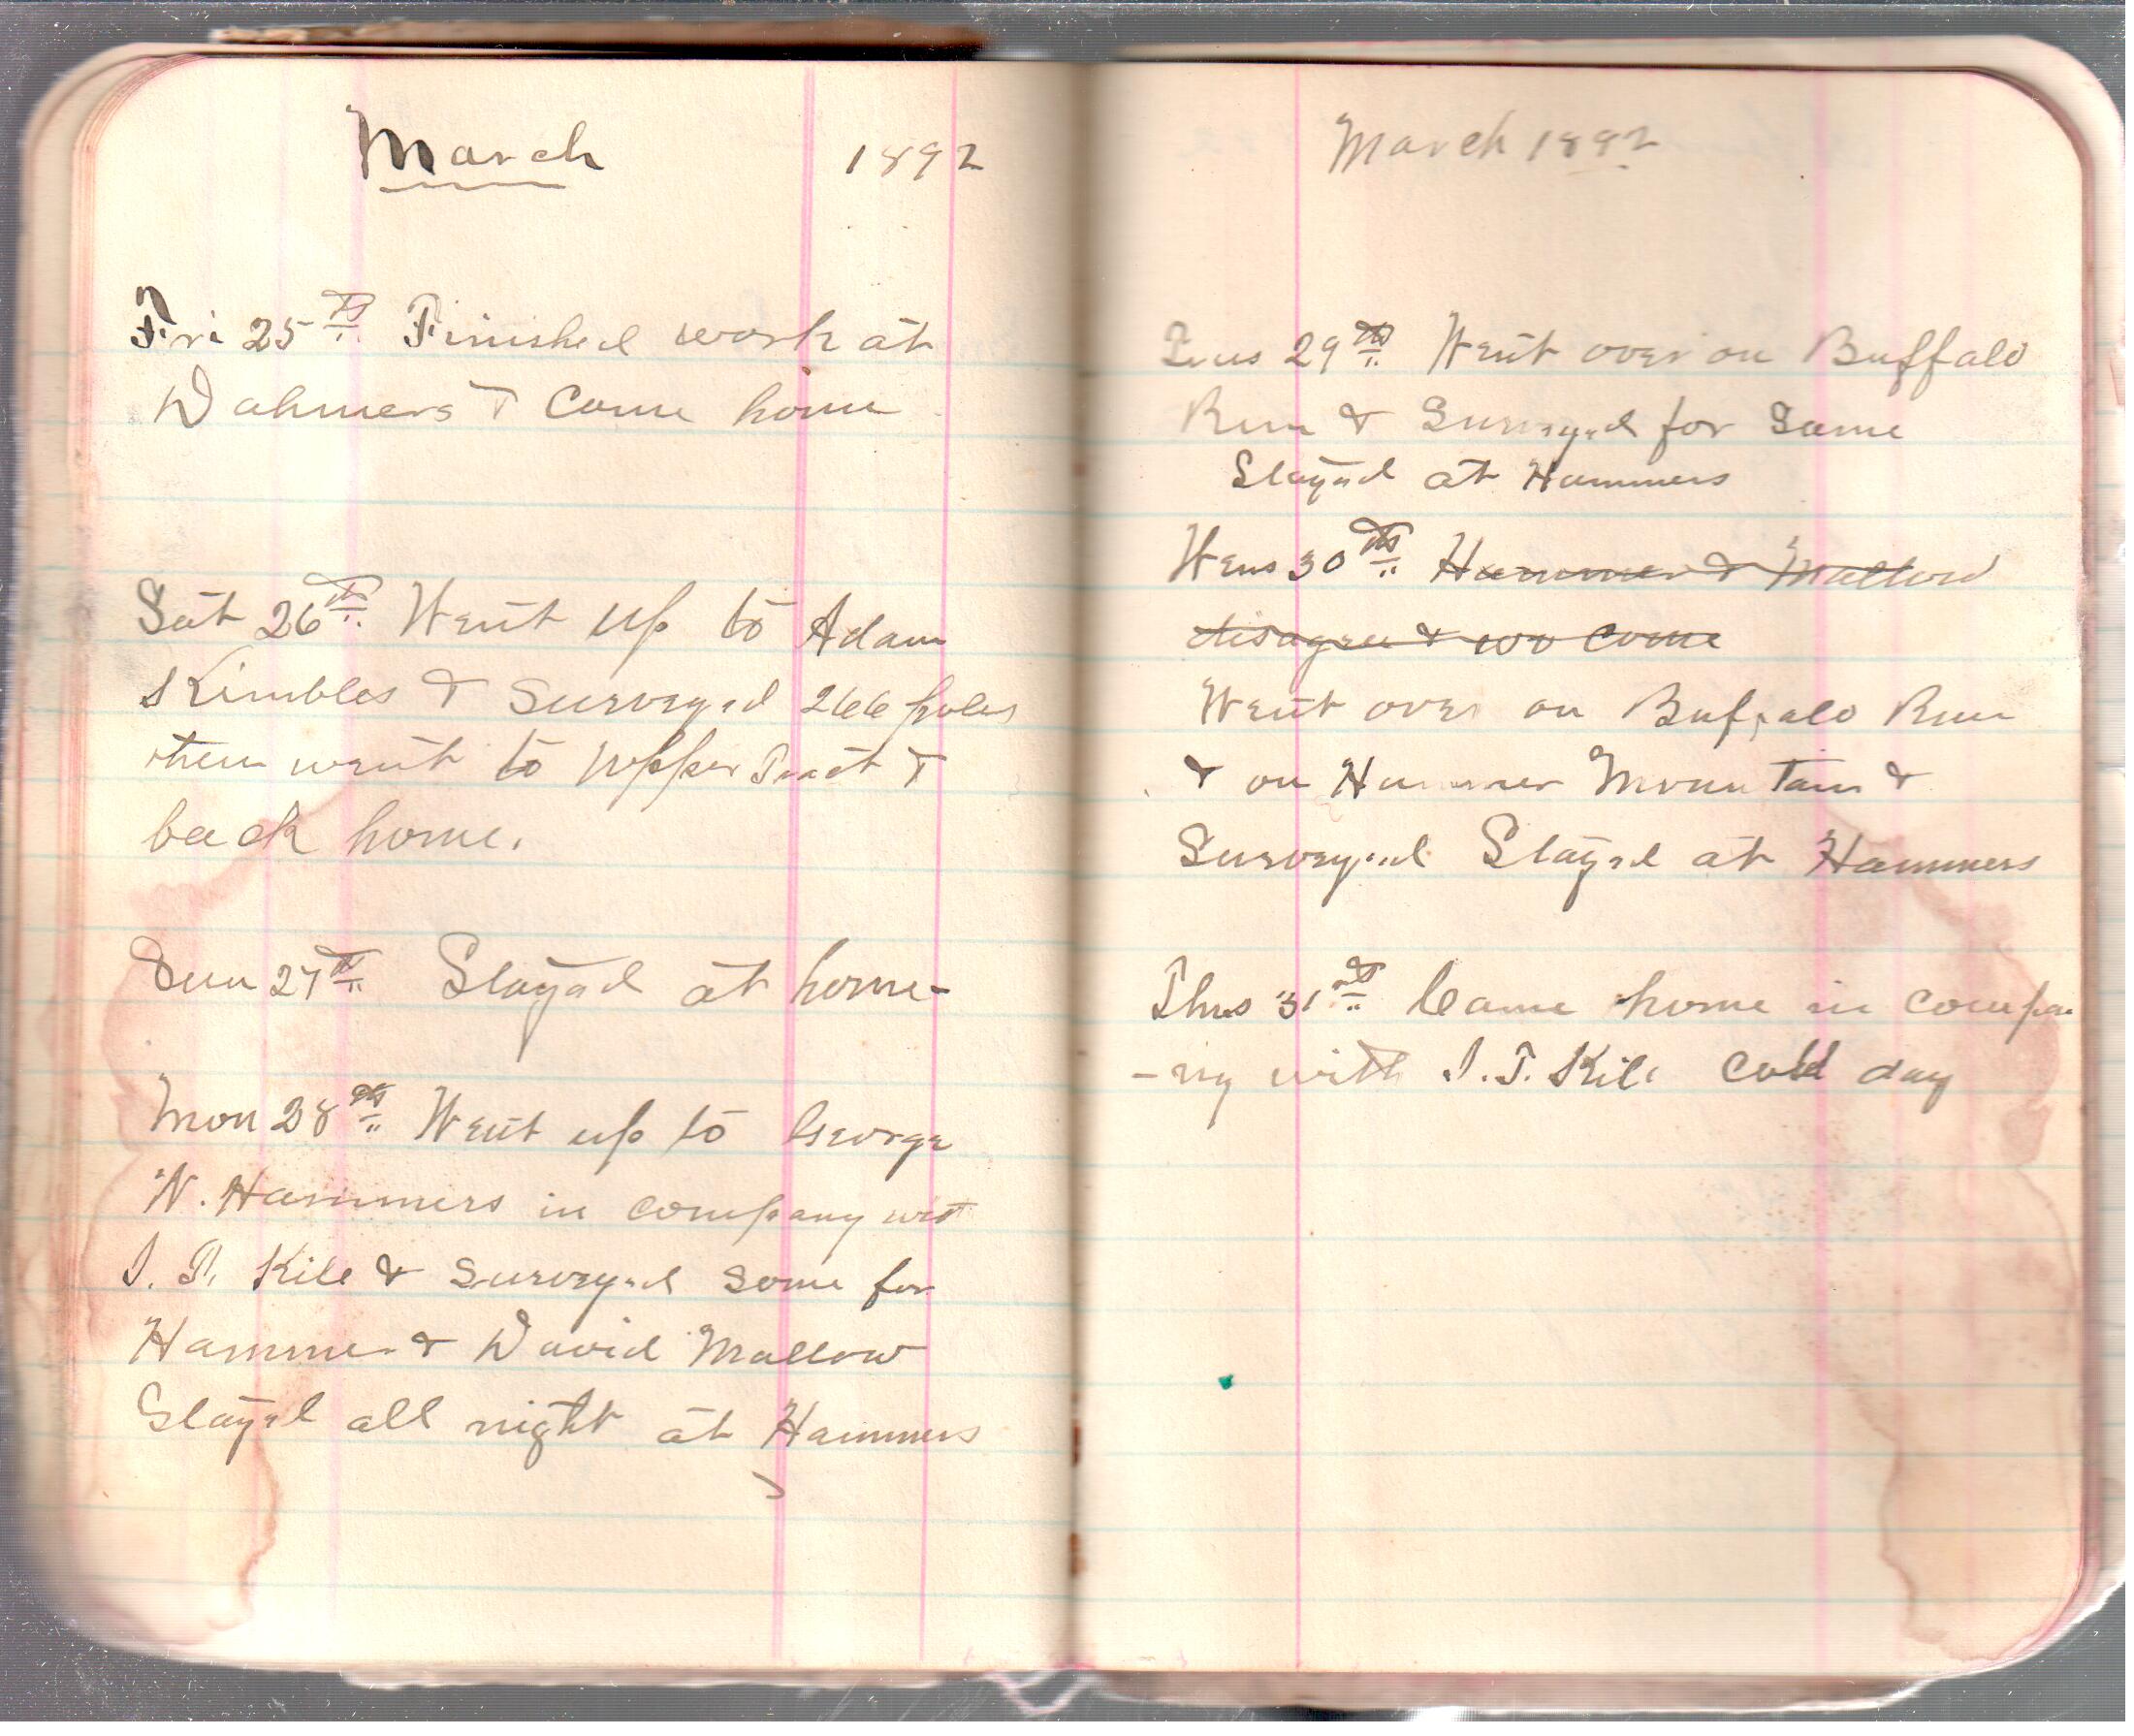 March 1892
Fri 25th Finished work at
Dahmers & Came home
Sat 26th Went up to Adam
Kimbles & Surveyed 266 poles
then went to Upper Tract &
back home.
Sun 27th Stayed at home-
Mon 28th Went up to George
W. Hammers in company wit
I. T. Kile & surveyed some for
Hammer & David Mallow
Stayed all night at Hammers
March 1892
Tues 29th Went over on Buffalo
Run & Surveyed for Same
Stayed at Hammers
Wens 30th Hammer & Mallow
disagree & wo come
Went over on Buffalo Run
& on Hammer Mountain &
Surveyed Stayed at Hammers
Thus 31st Came home in compa
-ny with I. T. Kile Cold day